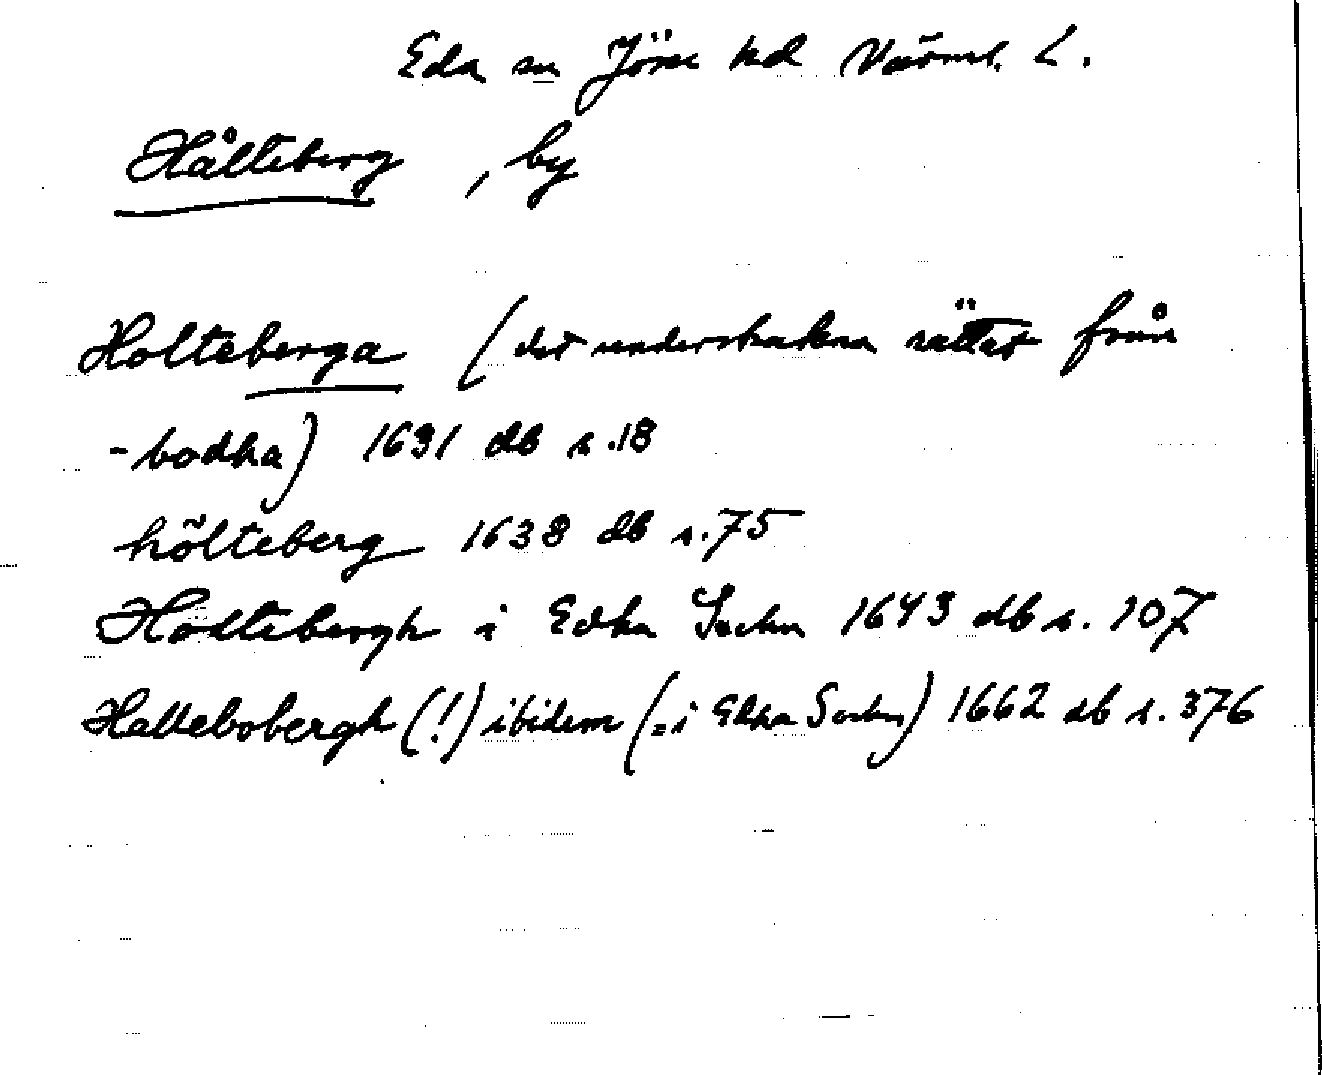 Eda sn Jösse hd Värml. L.
Hålteberg, by
Holteberga (det understrukna rättat från
-bodha) 1631 db s.18
hölteberg 1638 db s.75
Hodtebergh i Edha Sochn 1643 db s. 107
Haltebobergh (!) ibidem (= i Edha Sochn) 1662 db s. 376